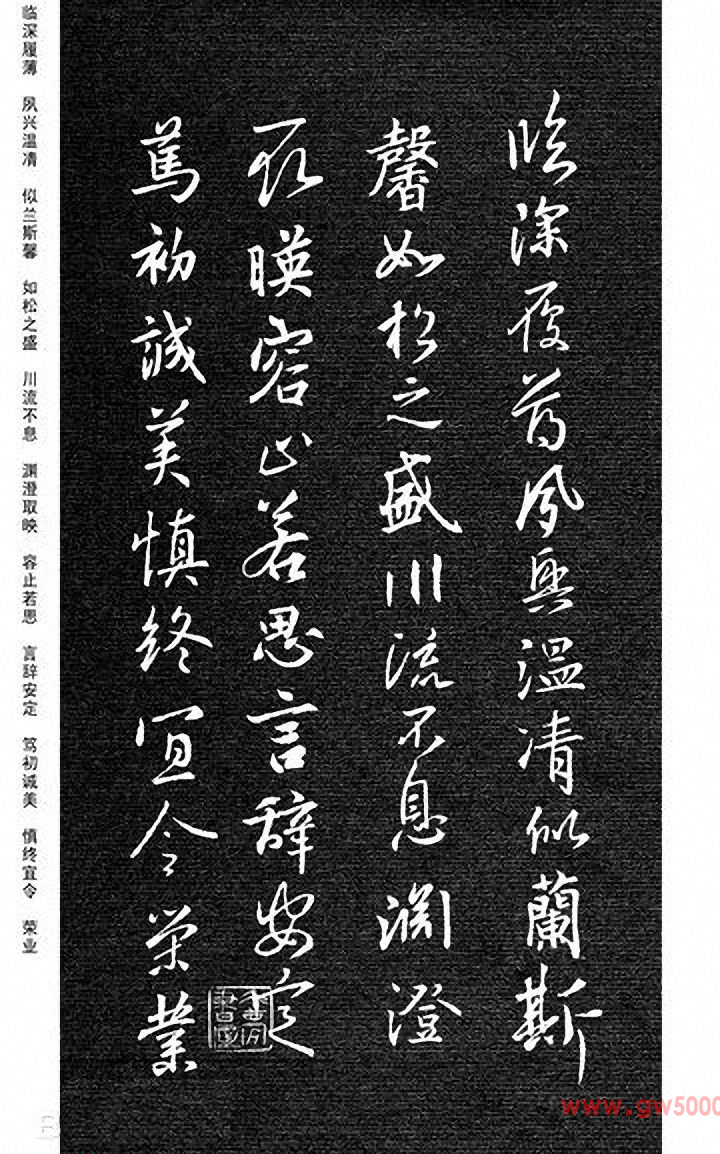 臨深履薄夙興溫凊似蘭斯
馨如松之盛川流不息淵澄
取暎容止若思言辭安定
篤初誠美慎終宜令榮業
临深履薄 夙兴温凊 似兰斯馨 如松之盛 川流不息 渊澄取映 容止若思 言辞安定 笃初诚美 慎终宜令 荣业
www.gw5000